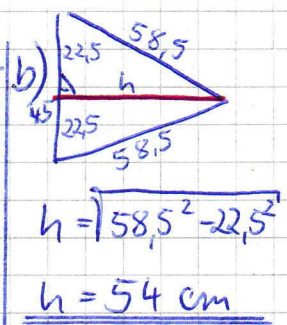 b)
58,5
22,5
h
45
22,5
58,5
h = √58,5² - 22,5²
h = 54 cm